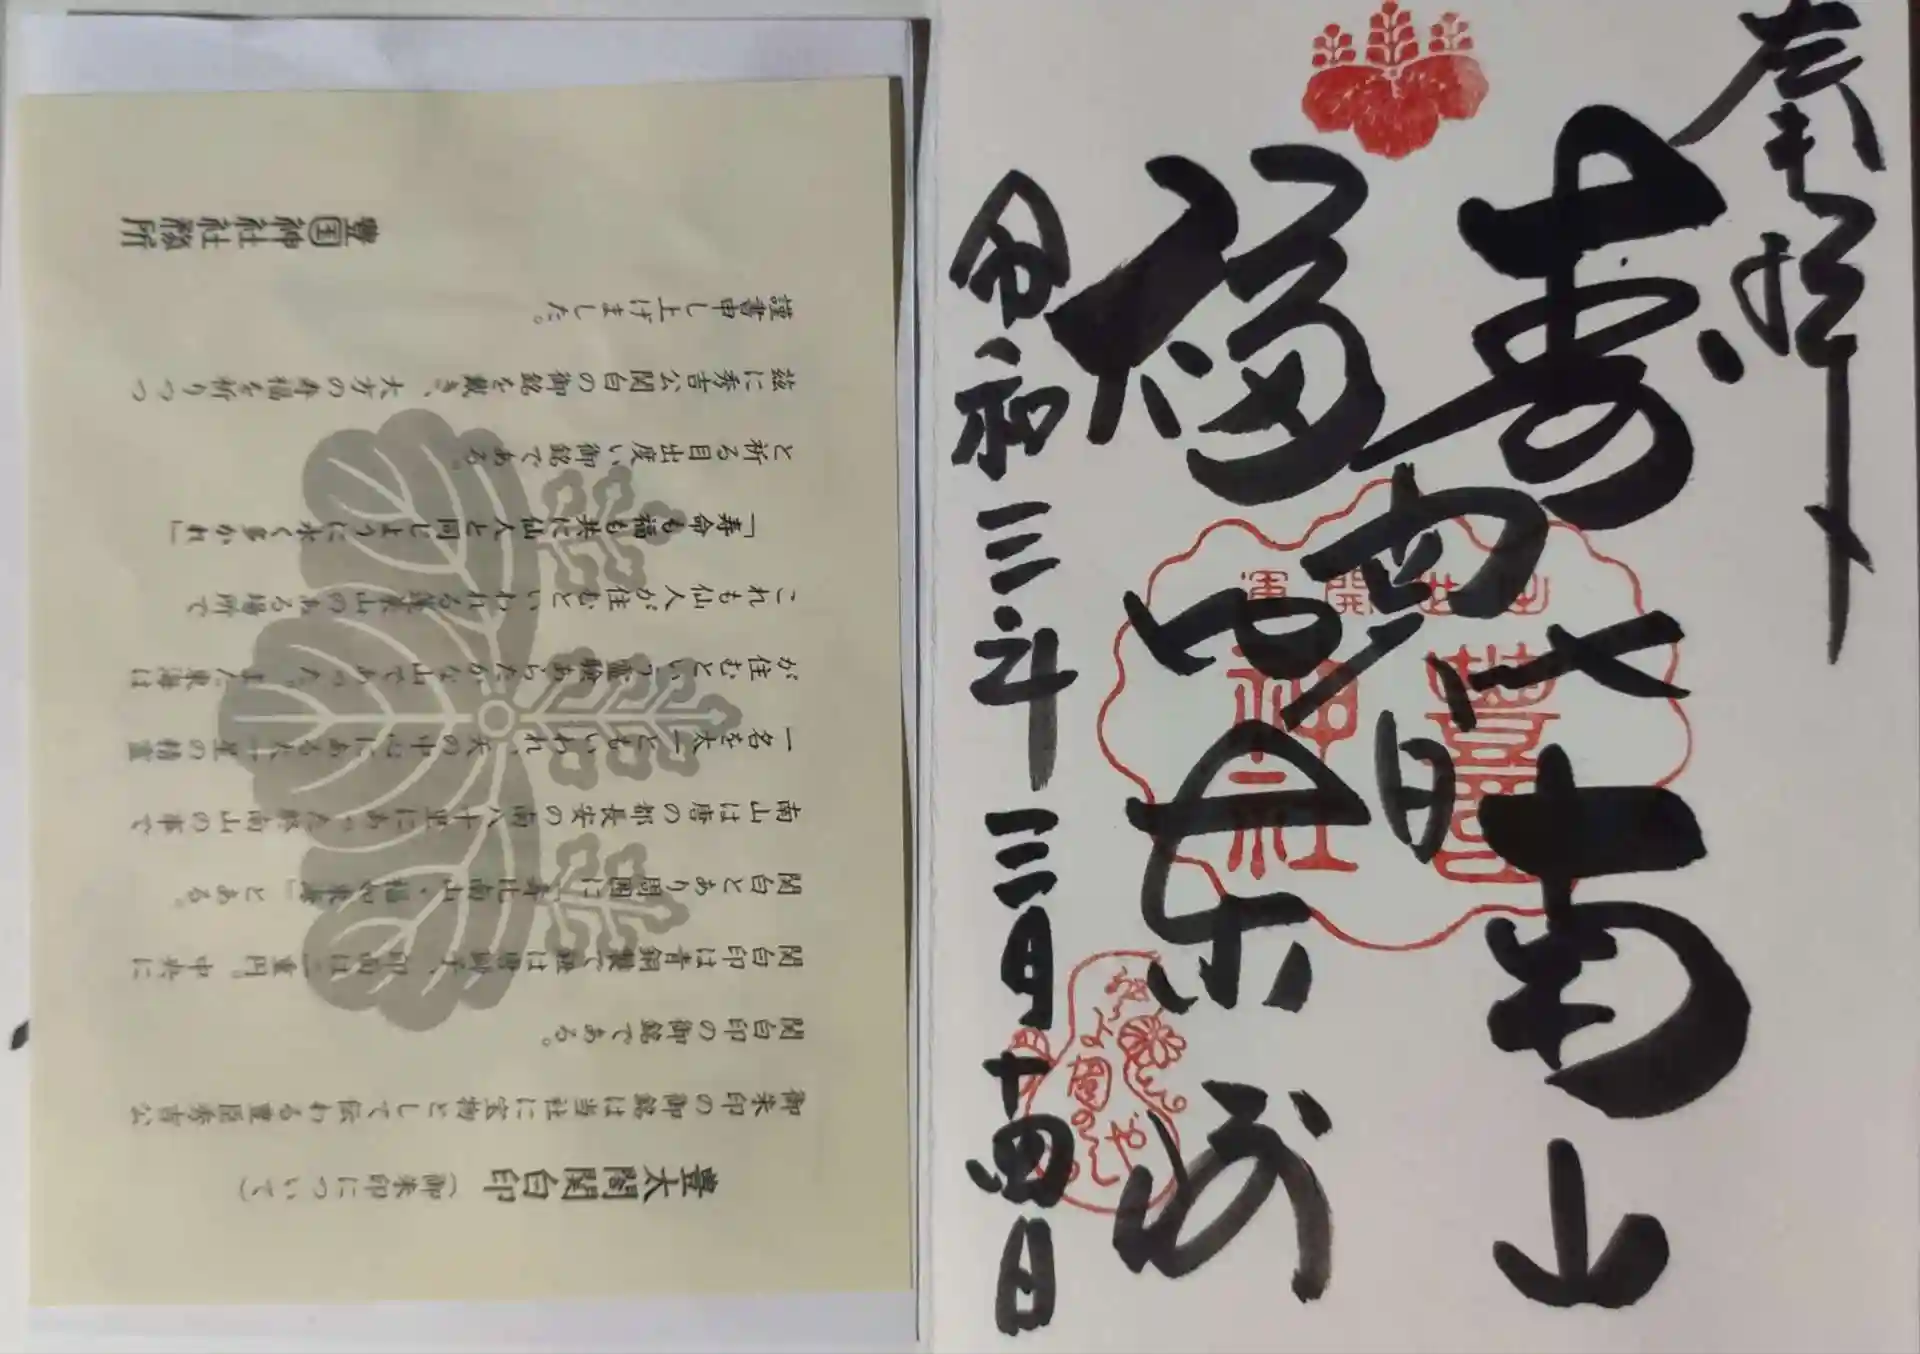 奉拝
寿比南山
関白
福如東海
令和三年三月十四日
出世開運
豊国
神社
豊太閤関白印(御朱印について)
御朱印の御銘は当社に宝物として伝わる豊臣秀吉公
関白印の御銘である。
関白印は青銅製で、鈕は唐獅子、印面は二重円。中央に
関白とあり周囲に「寿比南山・福如東海」とある。
南山は唐の都長安の南八十里にあった終南山の事で
一名を太一ともいわれ、天の中心にある太一星の精霊
が住むという霊験あらたかな山であった。また東海は
これも仙人が住むといわれる蓬莱山のある場所で
「寿命も福も共に仙人と同じように永く多かれ」
と祈る目出度い御銘である。
茲に秀吉公関白の御銘を戴き、大方の寿福を祈りつつ
謹書申し上げました。
豊国神社社務所